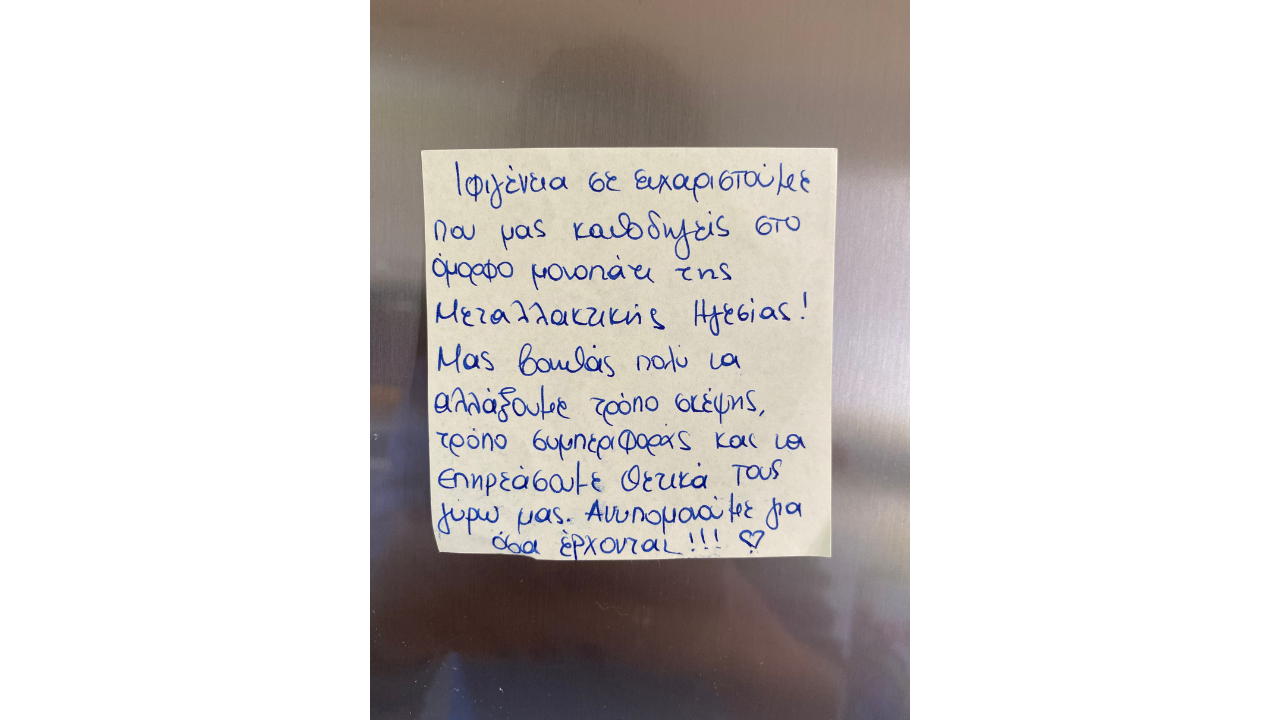 Ιφιγένεια σε ευχαριστούμε
που μας καθοδηγείς στο
όμορφο μονοπάτι της
Μεταλλακτικής Ηγεσίας!
Μας βοηθάς πολύ να
αλλάξουμε τρόπο σκέψης,
τρόπο συμπεριφοράς και να
επηρεάσουμε θετικά τους
γύρω μας. Ανυπομονούμε για
όσα έρχονται!!! ♡